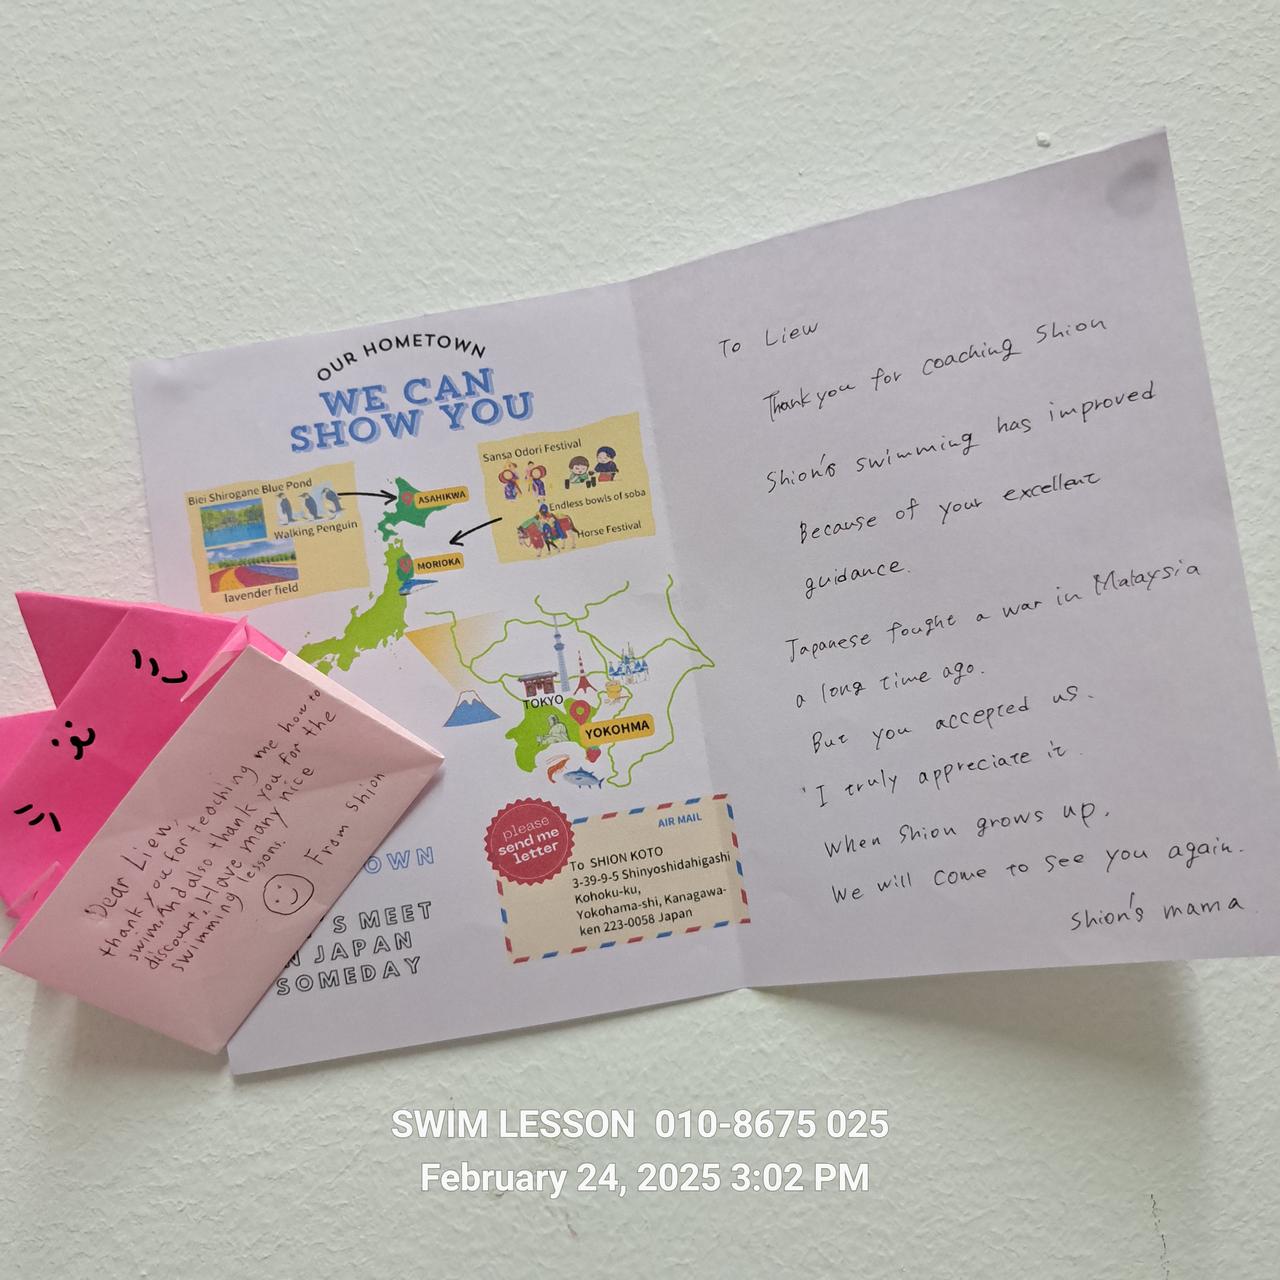 OUR HOMETOWN
WE CAN
SHOW YOU
Biei Shirogane Blue Pond
Walking Penguin
lavender field
ASAHIKWA
Sansa Odori Festival
Endless bowls of soba
Horse Festival
MORIOKA
TOKYO
YOKOHMA
please
send me
letter
AIR MAIL
To SHION KOTO
3-39-9-5 Shinyoshidahigashi
Kohoku-ku,
Yokohama-shi, Kanagawa-
ken 223-0058 Japan
OWN
S MEET
N JAPAN
SOMEDAY
Dear Liew,
thank you for teaching me how to
swim. And also thank you for the
discount. I Have many nice
swimming lessons.
From Shion
To Liew
Thank you for coaching Shion
Shion's swimming has improved
Because of your excellent
guidance.
Japanese fought a war in Malaysia
a long time ago.
But you accepted us.
I truly appreciate it.
When Shion grows up,
We will come to see you again.
Shion's mama
SWIM LESSON 010-8675 025
February 24, 2025 3:02 PM